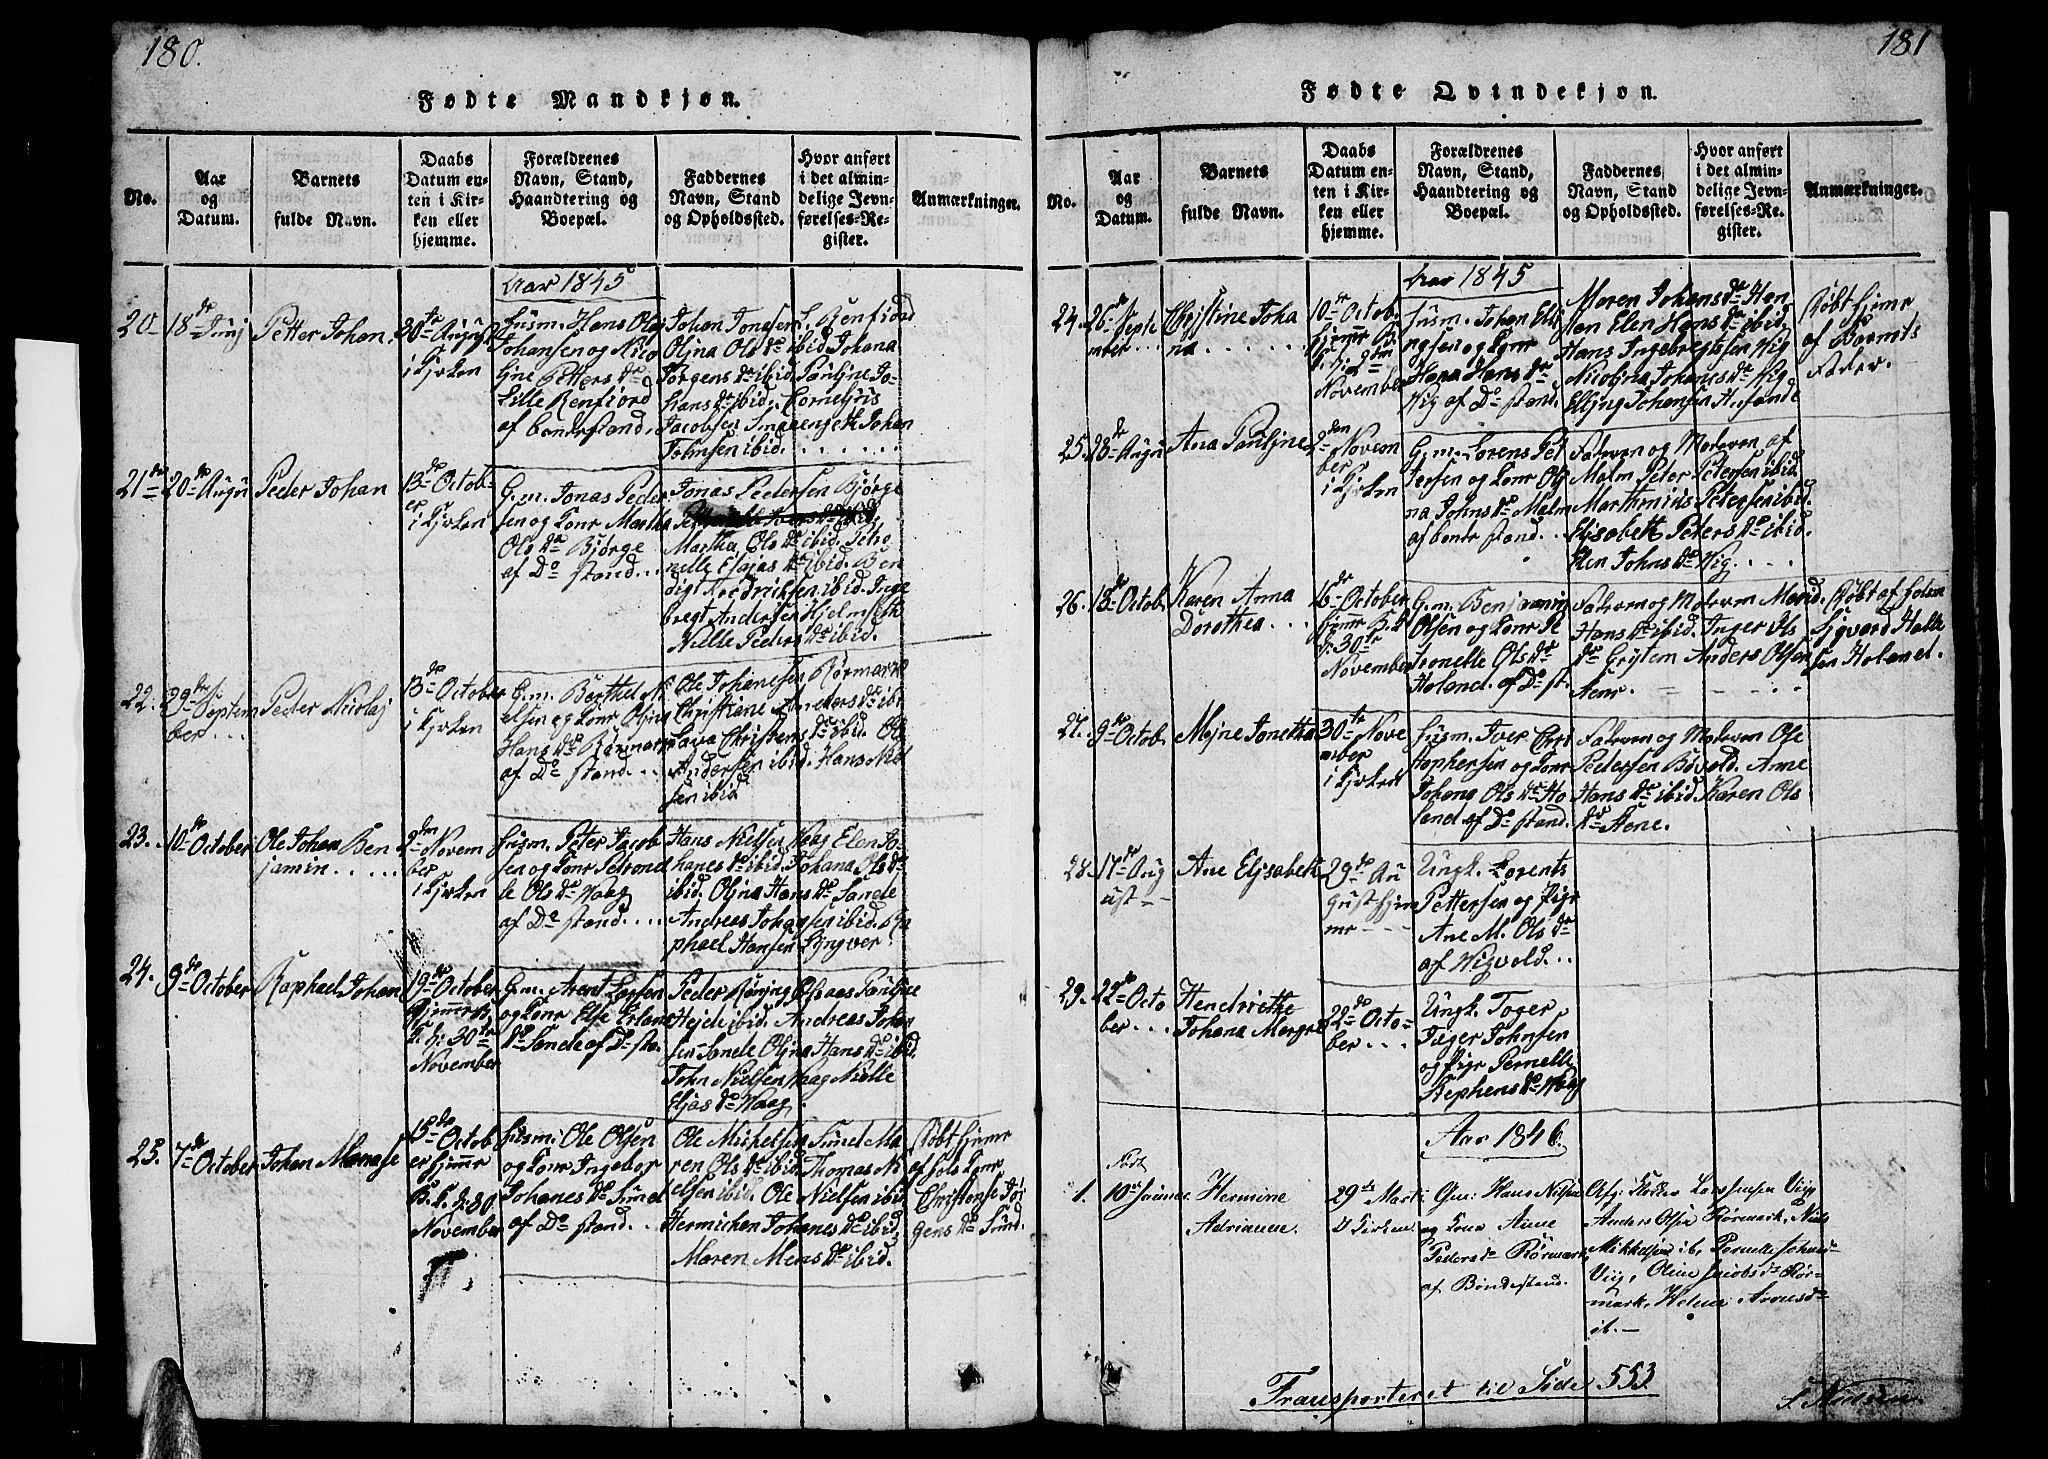 180.
Fødte Mandkjøn.
No.
Aar
og
Datum.
Barnets
fulde Navn.
Daabs
Datum en-
ten i Kir-
ken eller
hjemme.
Forældrenes
Navn, Stand,
Haandtering og
Boepæl.
Faddernes
Navn, Stand
og Opholdssted.
Hvor anført
i det almin-
delige Jevn-
førelses-Re-
gister.
Anmærkninger.
Aar 1845
20
18de Junj
Petter Johan
30te August
i Kjrken
Huusm. Hans Olaj
Johansen og Nico
ljne Petters dr
Lille Renfjord
af bondestand.
Johan Jonasen L. Renfiord
Oljna Ols dr ibid Johana
Jørgens dr ibid Pauljne Jo-
hans dr ibid. Corneljus
Jacobsen Johan
Johnsen ibid.
21
20de Augu
Peder Johan
13de Octob-
er
i Kjrken
G.m. Jonas Peder
sen og Konr Martha
Ols dr Bjørge
af Do stand
Jonas Pedersen Bjørge
Martha Ols dr ibid. Petro
nelle Esajas dr ibid. Ben
digt Fredriksen ibid. Inge
bregt Andersen Hjelmseth
Nille Peders dr ibid.
22.
29de Septem
ber
Peder Nicolaj
13de October
i Kjrken
G.m. Berthel Ni
elsen og Konr Oljna
Hans dr Rørmark
af Do stand
Ole Johansen Rørmark
Christiane Anders dr ibi
Christens dr ibid. Ole
Andersen ibid. Hans Niel
sen ibid
23.
10de October
Ole Johan Ben
jamin
2den Novem
ber
i Kjrken
Huusm. Peter Jacob
sen og Konr Petronel
le Ols dr Vaag
af Do stand
Hans Nielsen Vaag Elen Jo-
hanes dr ibid. Johana Ols dr
ibid. Oljna Hans dr Sande
Andreas Johansen ibid. Ra
phael Hansen Lyngver
24.
9de October
Raphael Johan
19de October
hjemme
30te
November
G.m. Arent Larsen
og Konr Else Erlans
dr Sande af Do sta.
Peder Røning
Hejde ibid. Andreas Johan
sen Sande Oljna Hans dr ibid.
John Nielsen Vaag Nille
Eljas dr Vaag.
25.
7de October
Johan Manase
15de Octob
er hjemr
30
November
Husm: Ole Olsen
og Konr Ingebor
Johanes dr Sund
af Do stand
Ole Michelsen Sund Ma
ren Ols dr ibid. Thomas Ni
elsen ibid. Ole Nielsen ibid
Johanes dr ibid.
Maren Mons dr ibid.
Døbt hjemr
Christense Jør
gens dr Sund.
181
Fødte Qvindekjøn.
No.
Aar
og
Datum.
Barnets
fulde Navn.
Daabs
Datum en-
ten i Kir-
ken eller
hjemme.
Forældrenes
Navn, Stand,
Haandtering og
Boepæl.
Faddernes
Navn, Stand
og Opholdssted.
Hvor anført
i det almin-
delige Jevn-
førelses-Re-
gister.
Anmærkninger.
Aar 1845
24.
26de Septe
mber
Christine Joha
na
10de Octob.
hjemr
November
Husm. Johan Elli
ngsen og Konr
Hana Hans dr
Wig af Do stand.
Maren Johans dr Han
sen Elen Hans dr ibid
Hans Ingebregtsen Wig
Nicoljna Johans dr Wig
Elljng Johansen
Døbt hjemr
af Barnets
Fader.
25.
23de Augu
Ana Pauljne
2den Novem
ber
i Kjrken
G.m. Lorens Pet
tersen og Konr Olj
na Johns dr Malm
af bonde stand
Faderen og Moderen af
Malm Peter Petersen ibid
Marthinius Petersen ibid.
Eljsabeth Peters dr ibid.
Elen Johns dr Wig.
26.
13de Octob
Karen Anna
Dorothea
16de October
hjemr
30te
November
G.m. Benjamin
Olsen og Konr Pe
tronelle Ols dr
Holand. af Do st.
Faderen og Moderen
Hans dr ibid. Inger Ols
dr Grytem Anders Olsen
Aenr.
Døbt af
Sjgvard Halle
sen Holand.
27.
9de Octob.
Mejne Jonetha
30te Nove
mber
i Kjrken
Husm. Iver Chri
stophersen og Konr
Johana Ols dr Ho
land af Do stand.
Faderen og Moderen Ole
Pedersen Bøvold. Ane
Hans dr ibid. Karen Ols
dr Aene.
28.
17de Aug
ust
Ane Eljsabeth
29de Au
gust hjem
mr
Ungk. Lorents
Pettersen og Pigr
Ane M. Ols dr
af Wigvold
29.
22de Octo
ber
Hendriethe
Johana Margre
22de Octo-
ber
Ungk. Toger
Toger Johnsen
og Pigr Pernelle
Stephens dr Vaag
Aar 1846.
Født
1.
10de Januar.
Hermine
Adrianne.
29de Marti
i Kirken
Gm: Hans Nilsen
og Kone Anne
Pedersdr Rørmark
af Bondestand.
Larsensen Viig
Anders Olsen Rørmark, Niels
Mikkelsen ib, Pernelle Johnsdr
Viig, Oline Jacobsdr Rør-
mark, Helene Arnesdr
ib.
Transporteret til Side 553.